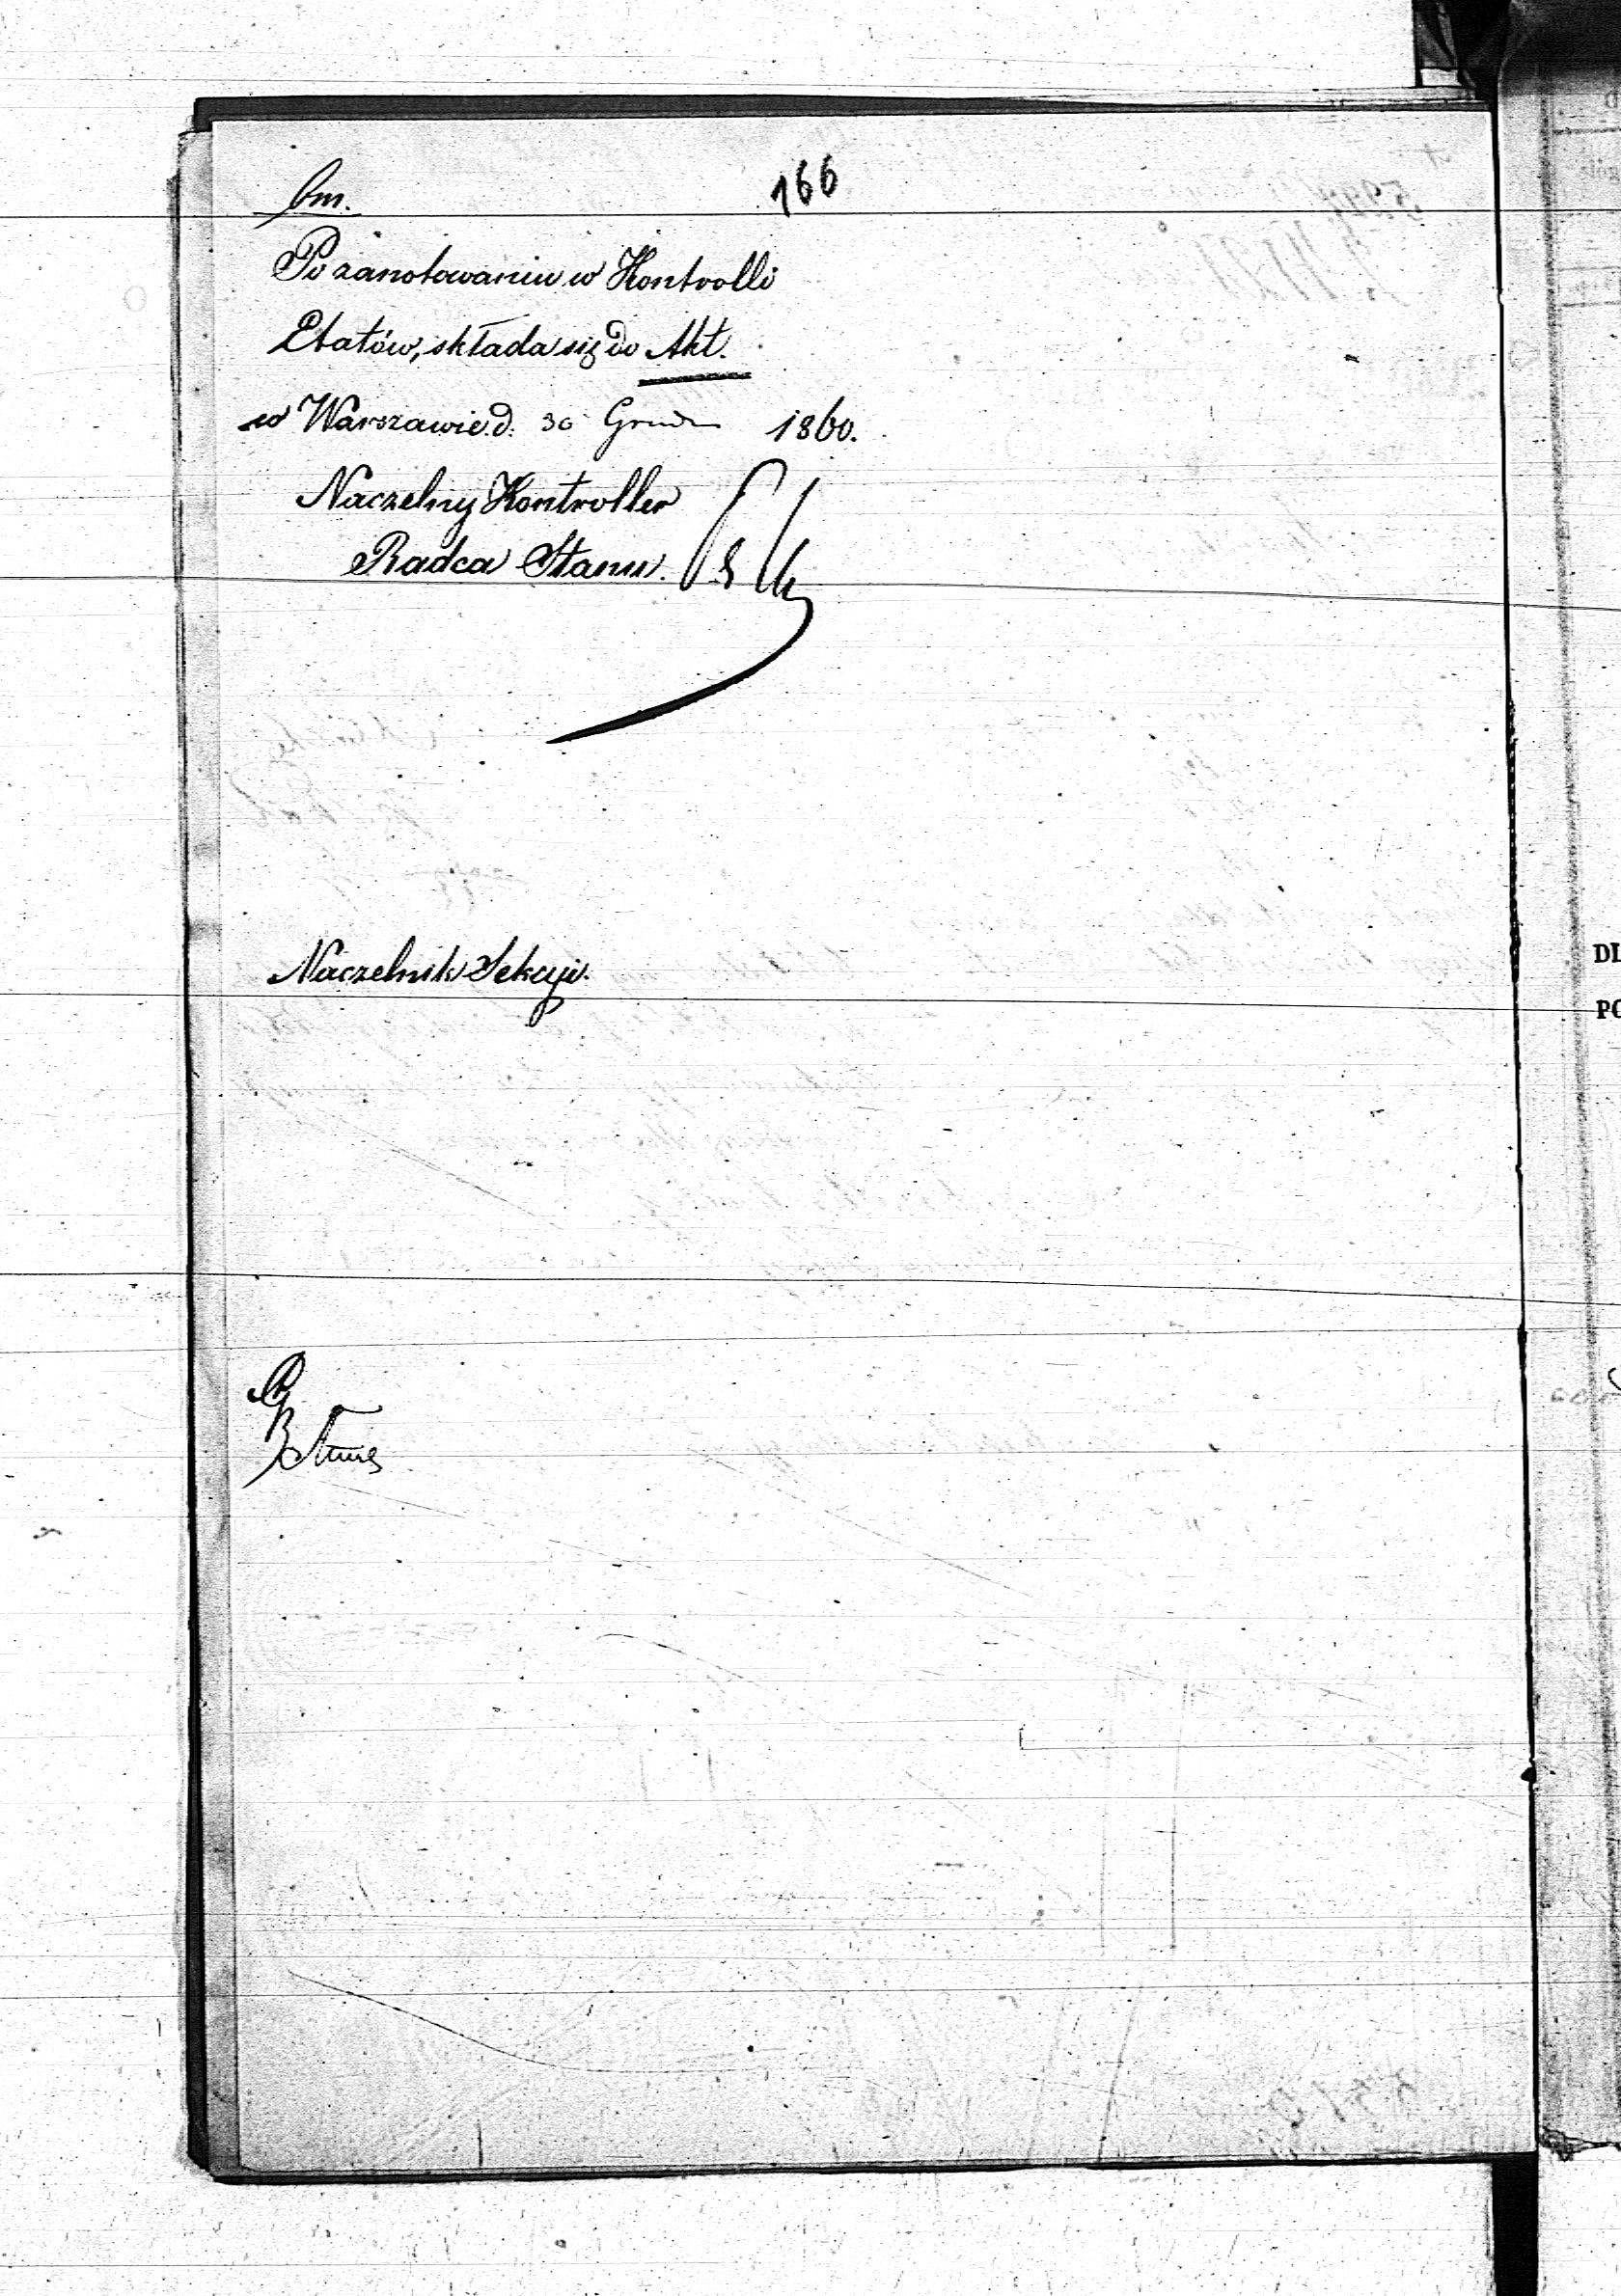 bm.
166
Po zanotowaniu w Kontrolli
Etatów, składa się do Akt.
w Warszawie d. 30 Grud 1860.
Naczelny Kontroller
Radca Stanu.
Naczelnik Sekcyi.
DL
PO